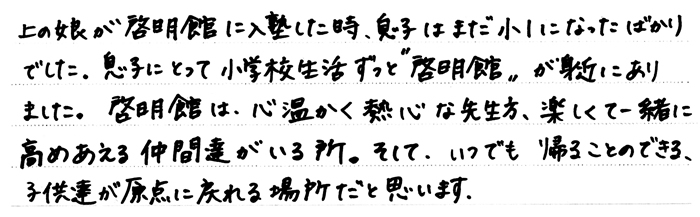 上の娘が啓明館に入塾した時、息子はまだ小1になったばかり
でした。息子にとって小学校生活ずっと"啓明館"が身近にあり
ました。啓明館は、心温かく熱心な先生方、楽しくて一緒に
高めあえる仲間達がいる所。そして、いつでも帰ることのできる、
子供達が原点に戻れる場所だと思います。